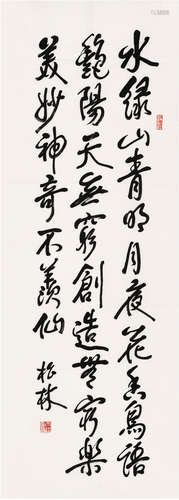 水绿山青明月夜花香鸟语
艳阳天无穷創造無穷樂
美妙神奇不羡仙
松林